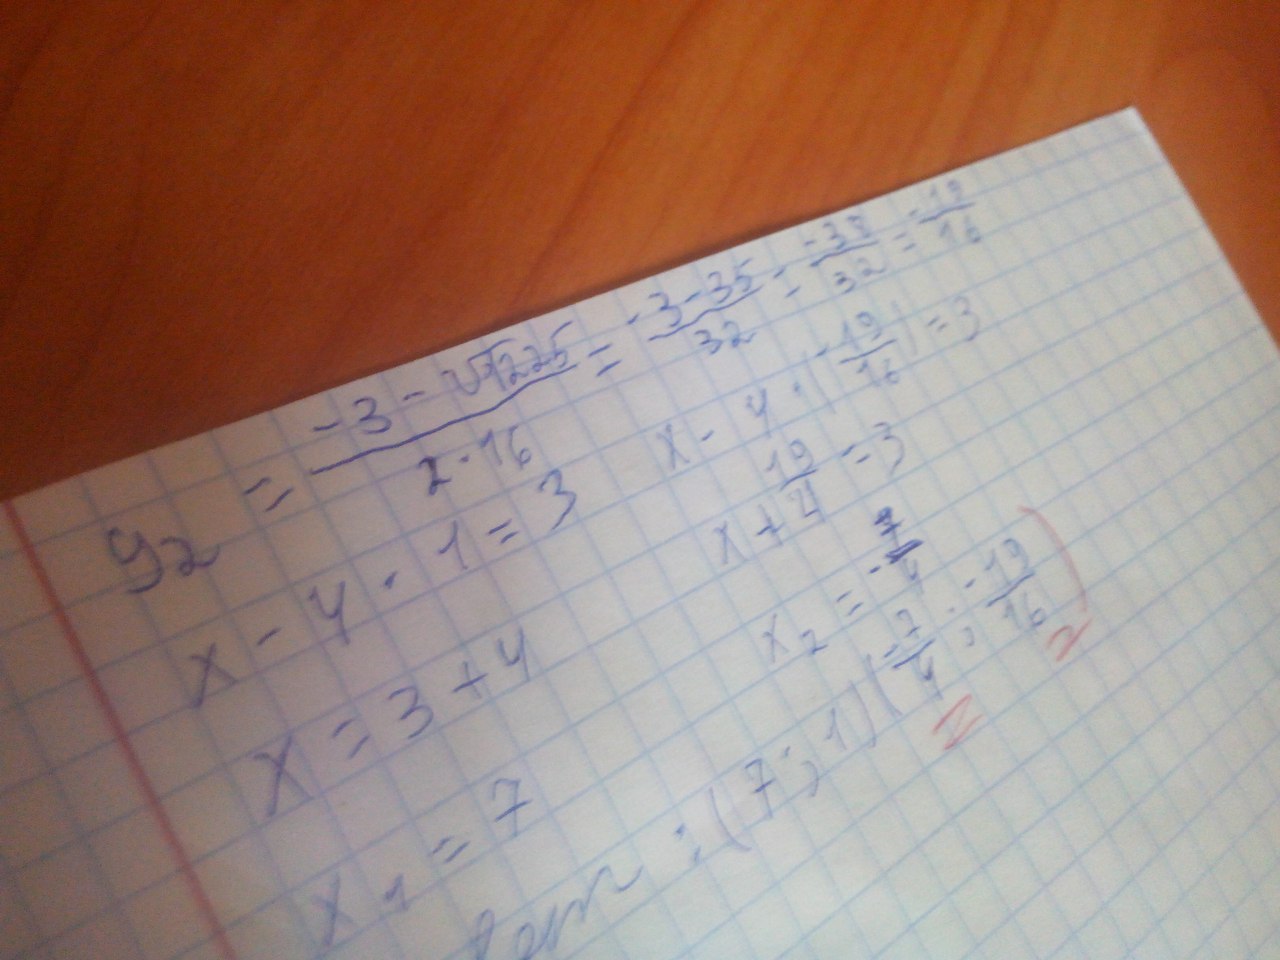 y₂ = (-3 - √1225)/(2 · 16) = (-3 - 35)/32 = -38/32 = -19/16
x - 4 · 1 = 3
x = 3 + 4
x₁ = 7
x - 4 · (-19/16) = 3
x + 19/4 = 3
x₂ = -7/4
: (7; 1) (-7/4; -19/16)